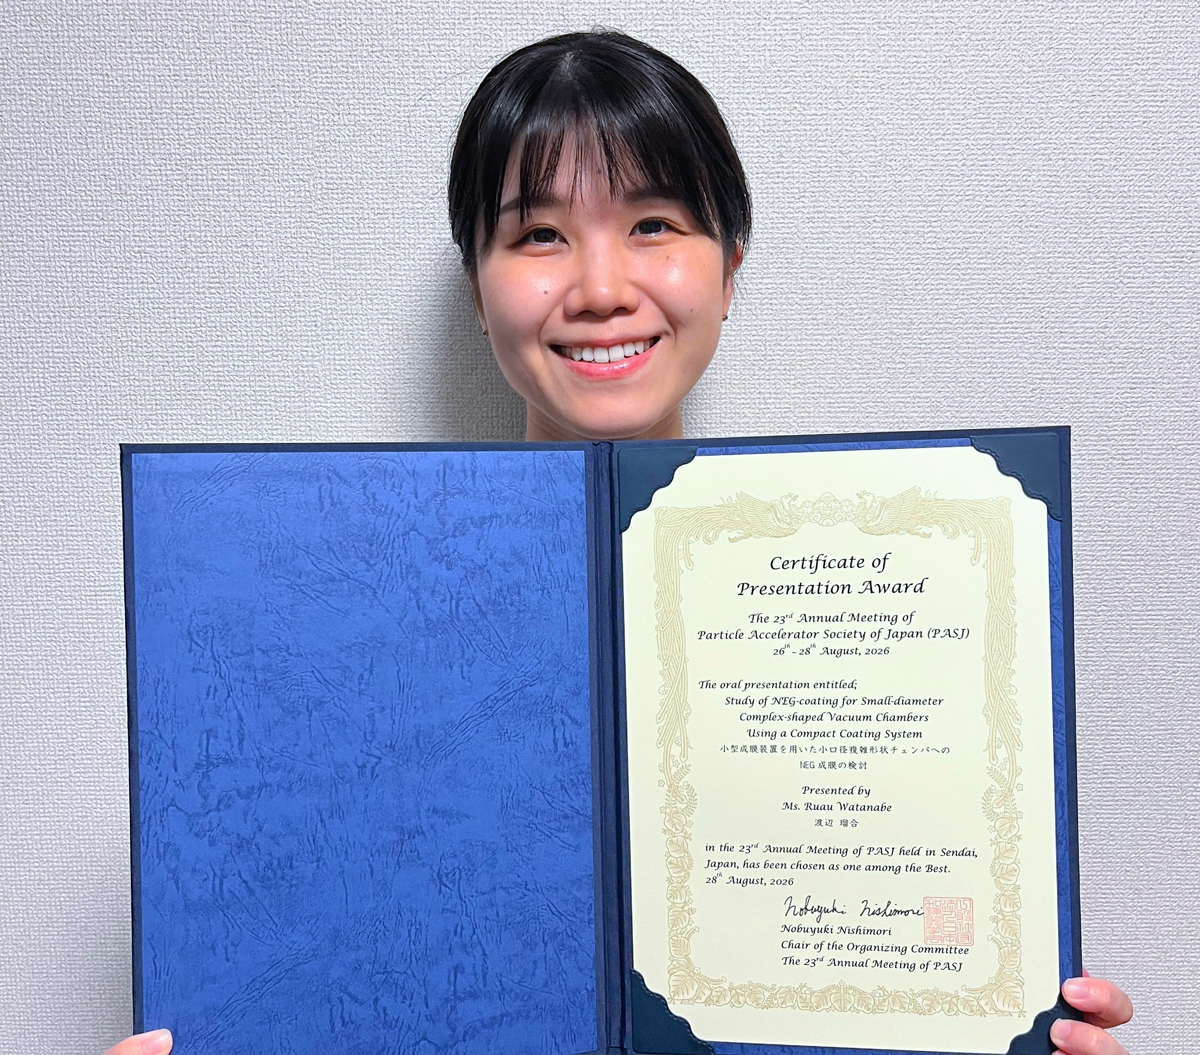 Certificate of
Presentation Award
The 23rd Annual Meeting of
Particle Accelerator Society of Japan (PASJ)
26th – 28th August, 2026
The oral presentation entitled;
Study of NEG-coating for Small-diameter
Complex-shaped Vacuum Chambers
Using a Compact Coating System
小型成膜装置を用いた小口径複雑形状チェンバへの
NEG 成膜の検討
Presented by
Ms. Ruau Watanabe
渡辺 瑠合
in the 23rd Annual Meeting of PASJ held in Sendai,
Japan, has been chosen as one among the Best.
28th August, 2026
Nobuyuki Nishimori
Nobuyuki Nishimori
Chair of the Organizing Committee
The 23rd Annual Meeting of PASJ